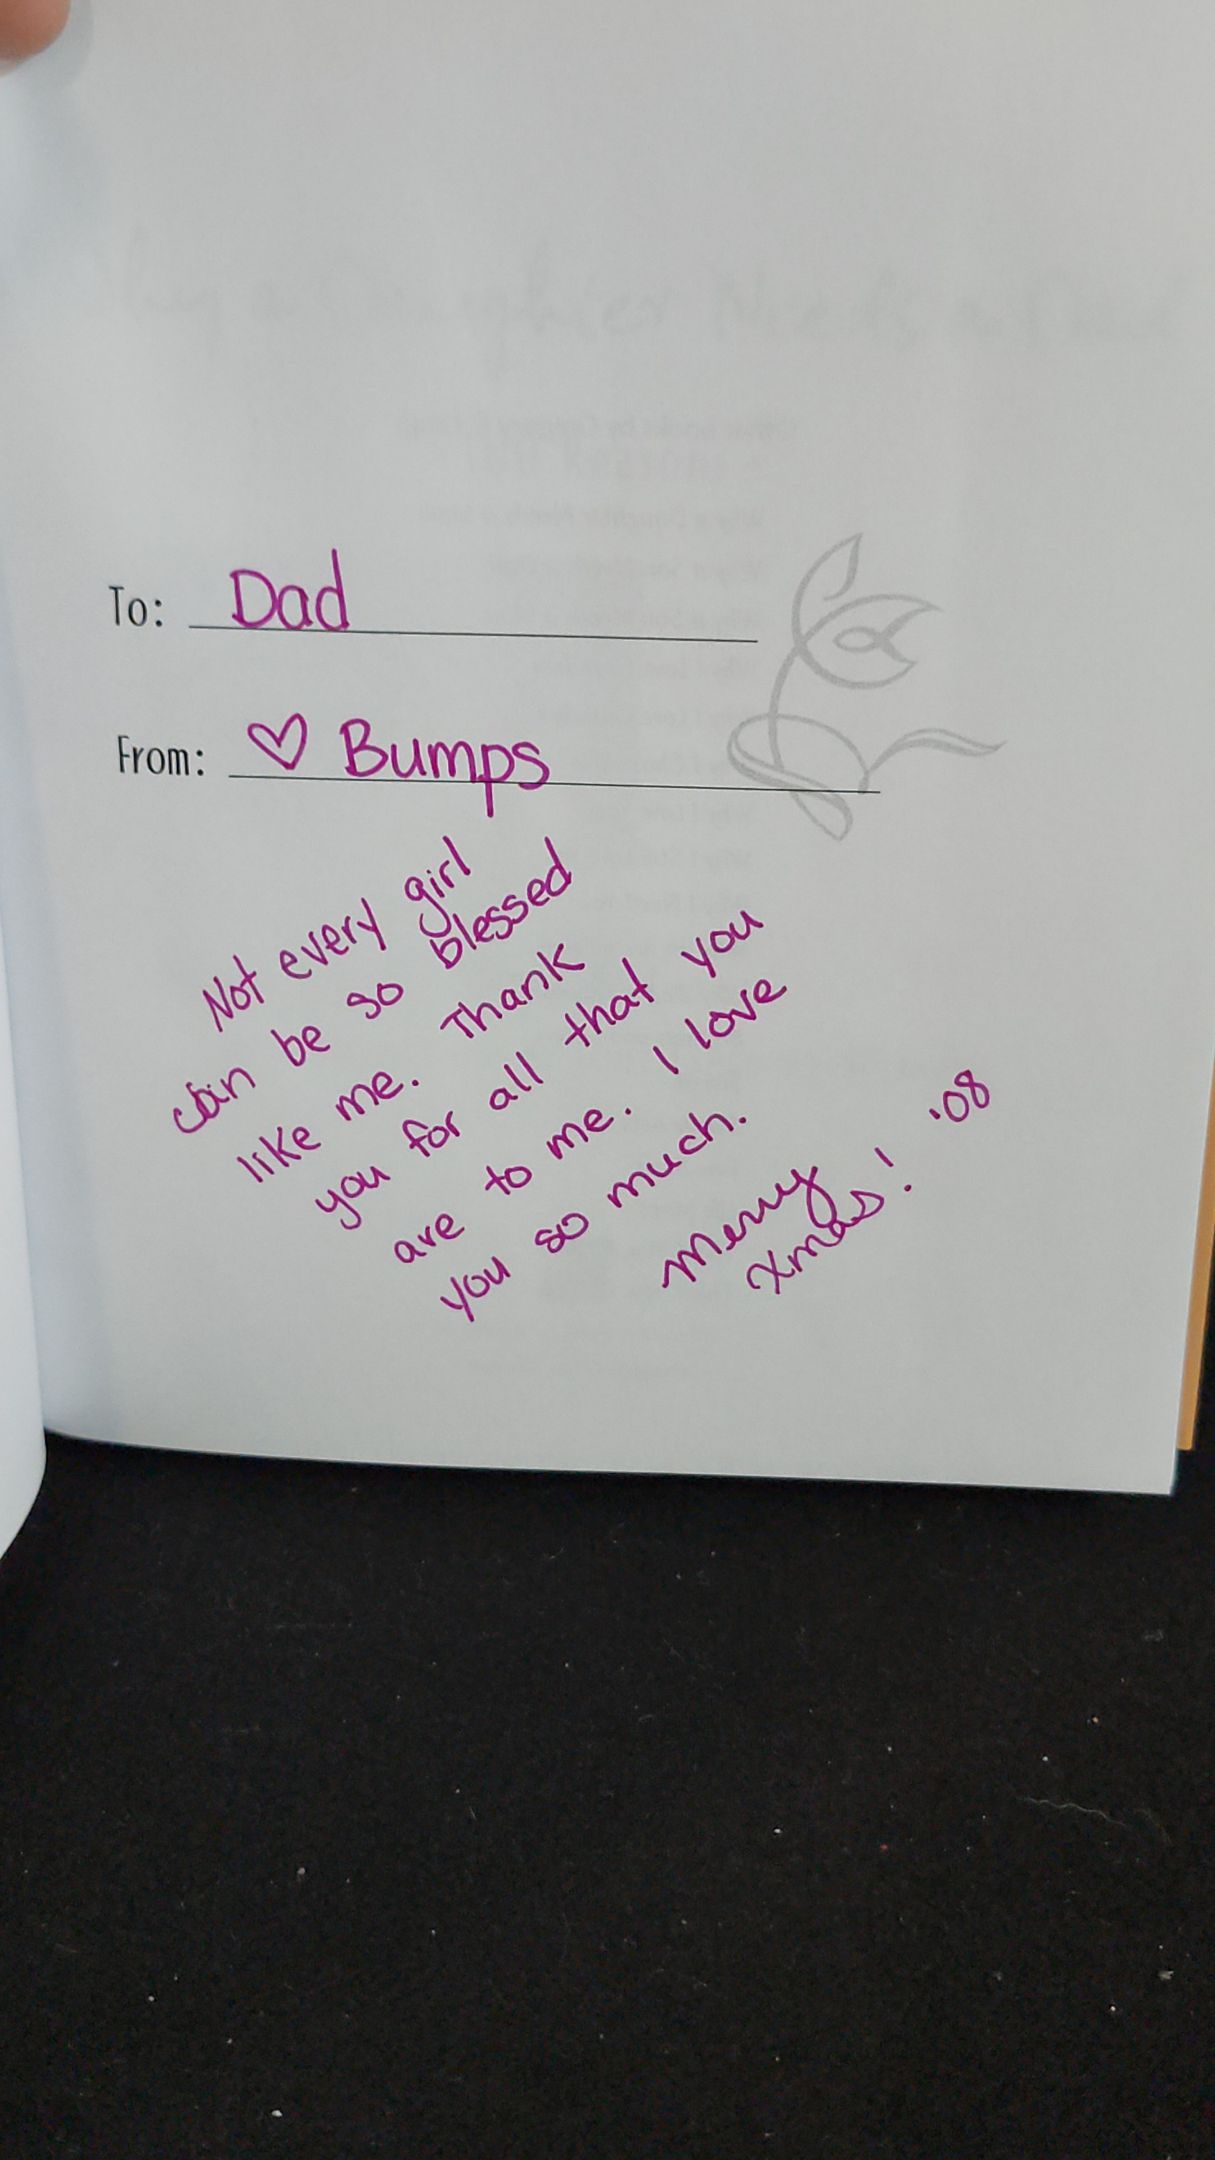 To: Dad
From: ♡ Bumps
Not every girl
can be so blessed
like me. Thank
you for all that you
are to me. I love
you so much.
Merry
Xmas! '08